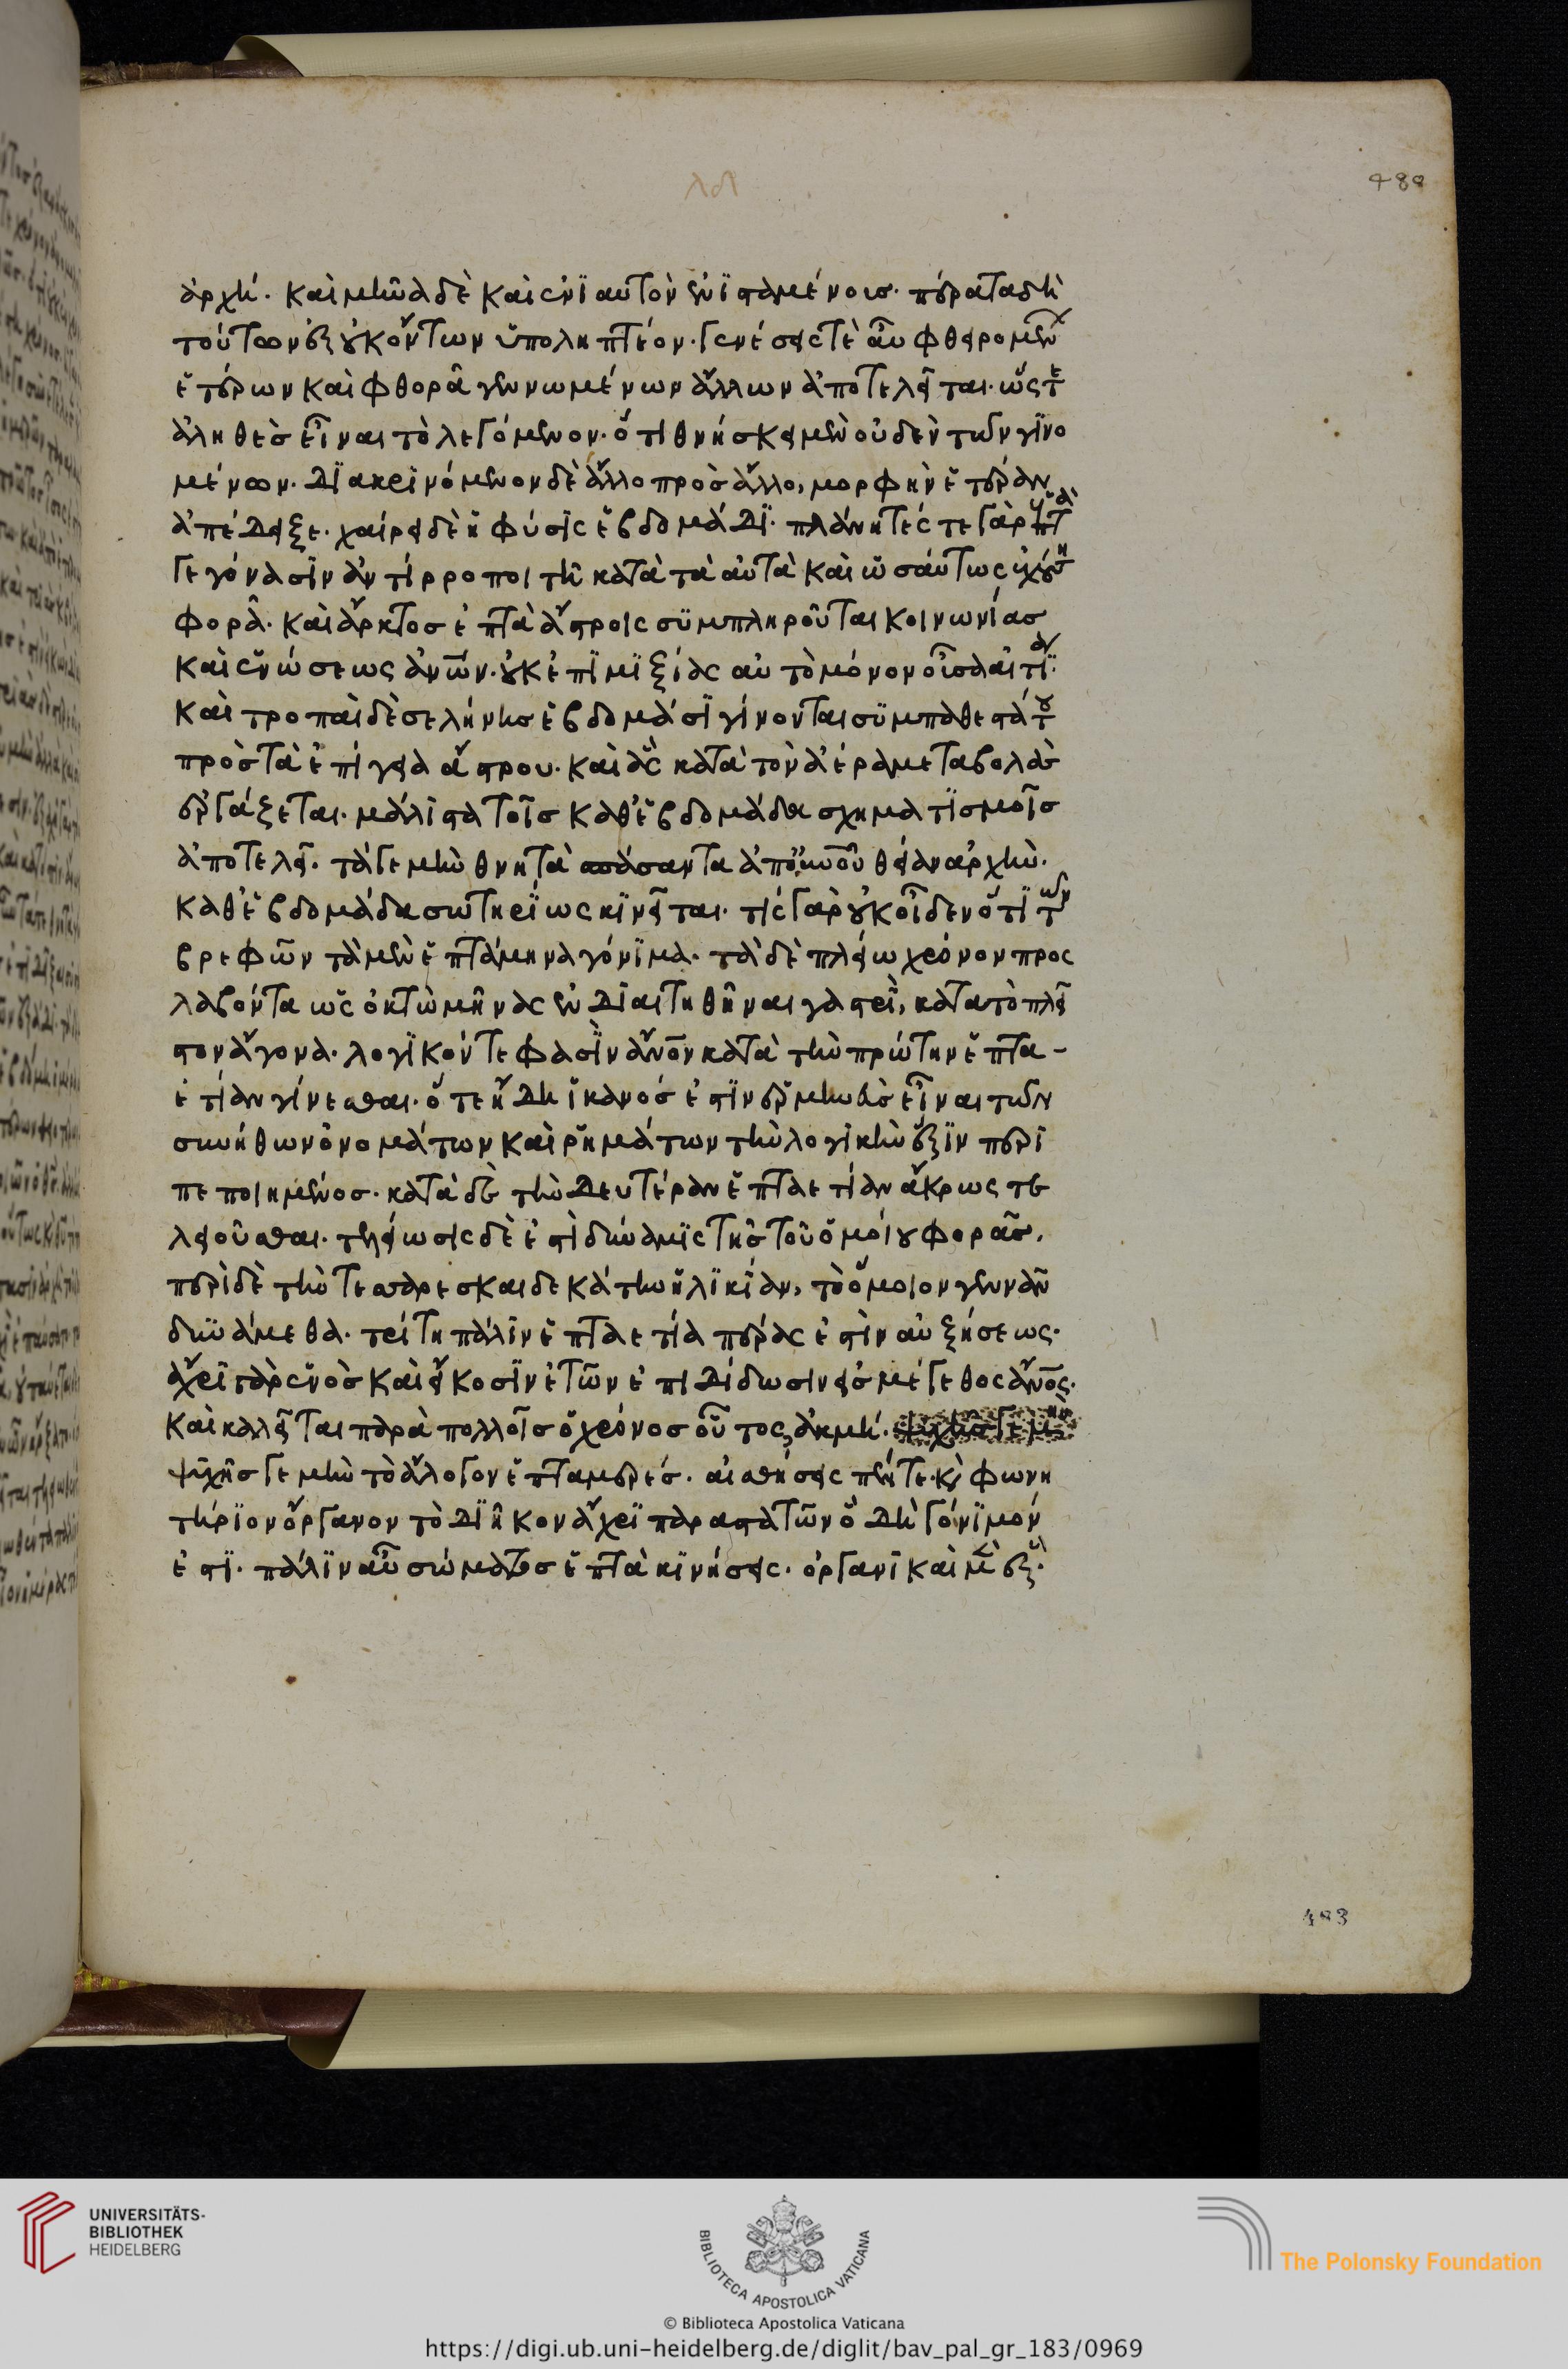 λδ
480
ἀρχή. καὶ μῆνα δὲ καὶ ἐνϊαυτὸν ἐνϊσταμένοις. πέρατα δὴ
τούτων ἐξηκόντων ὑποληπτέον. γενέσεις τὲ αὖ φθειρομένων
ἑτέρων καὶ φθορᾶ γεννωμένων ἄλλων ἀποτελεῖται. ὥστε
ἀληθὲς εἶναι τὸ λεγόμενον. ὅτι θνήσκει μὲν οὐδὲν τῶν γϊνο
μένων. Διακρϊνόμενον δὲ ἄλλο πρὸς ἄλλο, μορφὴν ἑτέραν
ἀπέδειξε. χαίρει δὲ ἡ φύσϊς ἑβδομάδϊ. πλάνητές τε γὰρ ἑπτὰ
γεγόνασϊν ἀντίρροποι τῆ κατὰ τὰ αὐτὰ καὶ ὡσαύτως ἐχούση
φορᾶ. καὶ ἄρκτος ἑπτὰ ἄστροις συμπληροῦται κοινωνίας
καὶ ἑνώσεως ἀνων. οὐκ ἐπϊμϊξίας αὐτὸ μόνον οὖσα αἰτία.
καὶ τροπαὶ δὲ σελήνης ἑβδομάσϊ γίνονται συμπαθεστάτου
πρὸς τὰ ἐπίγεια ἄστρου. καὶ ἃς κατὰ τὸν ἀέρα μεταβολὰς
ἐργάζεται. μάλϊστα τοῖς καθ' ἑβδομάδα σχηματϊσμοῖς
ἀποτελεῖ. τά γε μὴν θνητὰ σπάσαντα ἀπ' οὐνοῦ θείαν ἀρχὴν.
καθ' ἑβδομάδα σωτηρϊως κϊνεῖται. τίς γὰρ οὐκ οἶδεν ὅτϊ τῶν
βρεφῶν τὰ μὲν ἑπτάμηνα γόνϊμα. τὰ δὲ πλείω χρόνον προς
λαβόντα ὡς ὀκτὼ μῆνας ἐνδιαιτηθῆναι γαστρὶ, κατα τὸ πλεῖ
στον ἄγονα. λογϊκόν τε φασϊν ἄνον κατὰ τὴν πρώτην ἑπτα-
ετίαν γίνεσθαι. ὅτε ἤδη ἱκανός ἐστϊν ἑρμηνεὺς εἶναι τῶν
συνήθων ὀνομάτων καὶ ῥημάτων τὴν λογϊκὴν ἕξϊν περϊ
πεποιημένος. κατὰ δὲ τὴν δευτέραν ἑπταετίαν ἄκρως τε
λειοῦσθαι. τελείωσις δὲ ἐστὶ δύναμϊς τῆς τοῦ ὁμοίου φορᾶς.
περὶ δὲ τὴν τεσσαρεσκαιδεκάτην ἡλϊκίαν, τὸ ὅμοιον γεννᾶν
δυνάμεθα. τρίτη πάλϊν ἑπταετία πέρας ἐστὶν αὐξήσεως.
ἄχρϊ γὰρ ἑνὸς καὶ εἴκοσϊν ἐτῶν ἐπιδίδωσιν εἰς μέγεθος ἄνος.
καὶ καλεῖται παρὰ πολλοῖς ὁ χρόνος οὗτος, ἀκμή.
ψυχῆς γε μὴν τὸ ἄλογον ἑπταμερές. αἰσθήσεις πέντε. κὶ φωνη
τήριον ὄργανον τὸ διῆκον ἄχρϊ παραστατῶν ὃ δὴ γόνϊμόν
ἐστϊ. πάλϊν αὖ σώματος ἑπτὰ κϊνήσεις. ὀργανϊκαὶ μὲν ἕξ.
483
UNIVERSITÄTS-
BIBLIOTHEK
HEIDELBERG
BIBLIOTECA APOSTOLICA VATICANA
The Polonsky Foundation
© Biblioteca Apostolica Vaticana
https://digi.ub.uni-heidelberg.de/diglit/bav_pal_gr_183/0969